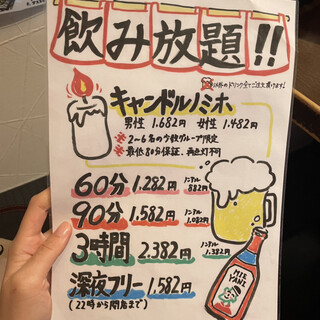 飲み放題!!
のドリンク全てご注文頂けます!
キャンドルノミホ
男性 1.682円 女性 1.482円
※ 2~6名の少数グループ限定
※ 最低80分保証、再点灯不可
60分 1.282円 ノンアル 882円
90分 1.582円 ノンアル 1.082円
3時間 2.382円 ノンアル 1.382円
深夜フリー 1.582円
(22時から閉店まで)